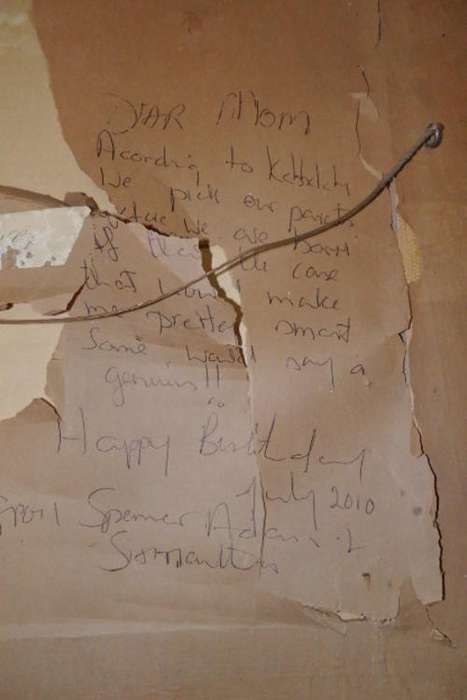 DEAR MOM
Acording to Kabbalah
We pick our parents
before we are born
If the case
that would make
me pretty smart
Some would say a
genius!!
Happy Birthday
July 2010
from Spencer Adam &
Samantha